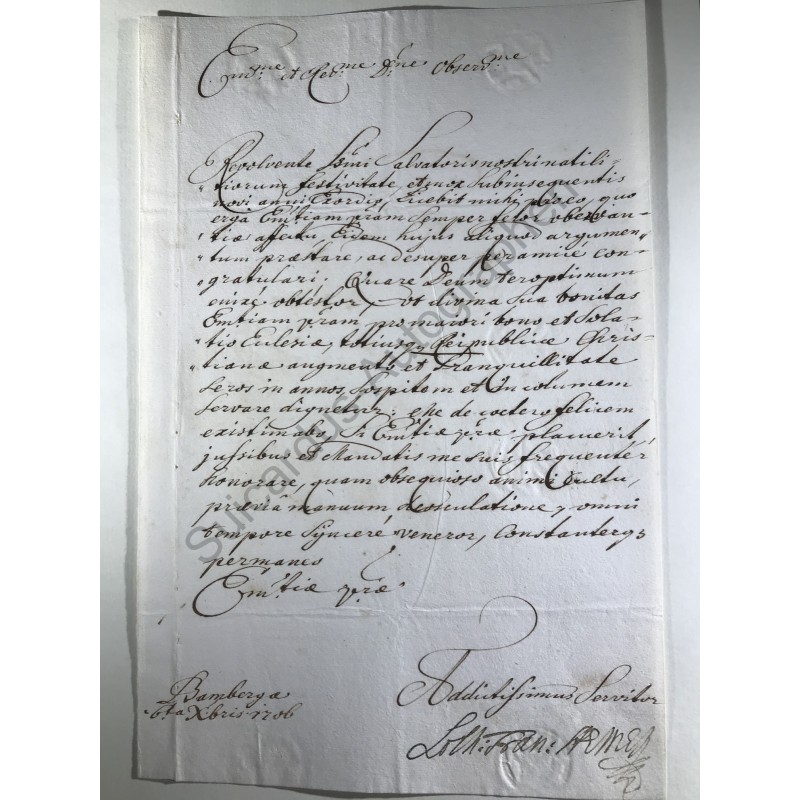 Em:me et Rev:me D:ne Observ:me
Revolvente S:smi Salvatoris nostri natili-
tiorum festivitate, et mox subinsequentis
novi anni Exordio, licebit mihi pro eo, quo
ergà Em:tiam v:ram semper feror observan-
tiæ affectu, Eidem hujus aliquod argumen-
tum præstare, ac desuper peramicè con-
gratulari; Quare Deum ter optimum
enixè obtestor, ut divina sua bonitas
Em:tiam v:ram pro maiori bono et Sola-
tio Eclesiæ, totiusq3 Reipublicæ Chris-
tianæ augmento et Tranquillitate
seros in annos, sospitem et incolumem
servare dignetur; Me de cœtero felicem
existimabo, si Em:tiæ v:ræ placuerit,
jussibus et Mandatis me suis frequentèr
honorare, quam obsequioso animi Cultu,
præviâ manuum deosculatione, omni
tempore synceré veneror, Constanterq3
permanes
Em:tiæ v:ræ
Bambergæ
6:ta Xbris 1706
Addictissimus Servitor
Loth: Fran: AEMEp
Suicardus-Autographen